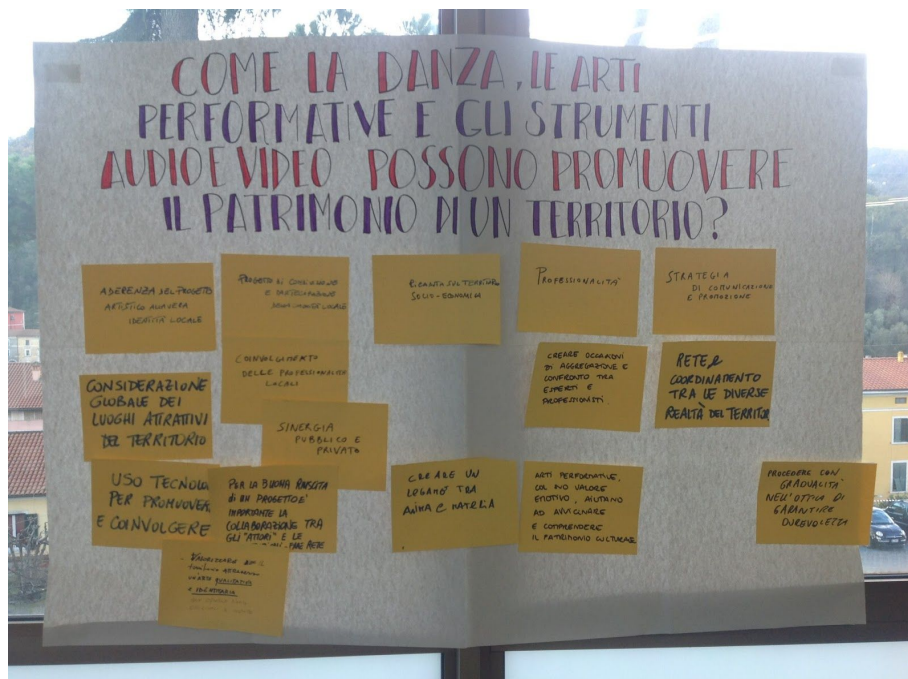 COME LA DANZA, LE ARTI
PERFORMATIVE E GLI STRUMENTI
AUDIO E VIDEO POSSONO PROMUOVERE
IL PATRIMONIO DI UN TERRITORIO?
ADERENZA DEL PROGETTO
ARTISTICO ALLA VERA
IDENTITÀ LOCALE
PROGETTO DI
E PARTECIPAZIONE
LOCALE
RICADUTA SUL TERRITORIO
SOCIO-ECONOMICA
PROFESSIONALITÀ
STRATEGIA
DI COMUNICAZIONE
E PROMOZIONE
COINVOLGIMENTO
DELLE PROFESSIONALITÀ
LOCALI
CREARE OCCASIONI
DI AGGREGAZIONE E
CONFRONTO TRA
ESPERTI E
PROFESSIONISTI.
RETE
COORDINAMENTO
TRA LE DIVERSE
REALTÀ DEL TERRITOR
CONSIDERAZIONE
GLOBALE DEI
LUOGHI ATTRATTIVI
DEL TERRITORIO
SINERGIA
PUBBLICO E
PRIVATO
USO TECNOLO
PER PROMUOVERE
E COINVOLGERE
PER LA BUONA RIUSCITA
DI UN PROGETTO E'
IMPORTANTE LA
COLLABORAZIONE TRA
GLI "ATTORI" E LE
FARE RETE
CREARE UN
LEGAME TRA
ANIMA E MATERIA
ARTI PERFORMATIVE,
COL LORO VALORE
EMOTIVO, AIUTANO
AD AVVICINARE
E COMPRENDERE
IL PATRIMONIO CULTURALE
PROCEDERE CON
GRADUALITÀ
NELL'OTTICA DI
GARANTIRE
DUREVOLEZZA
QUALITATIVA
E IDENTITARIA